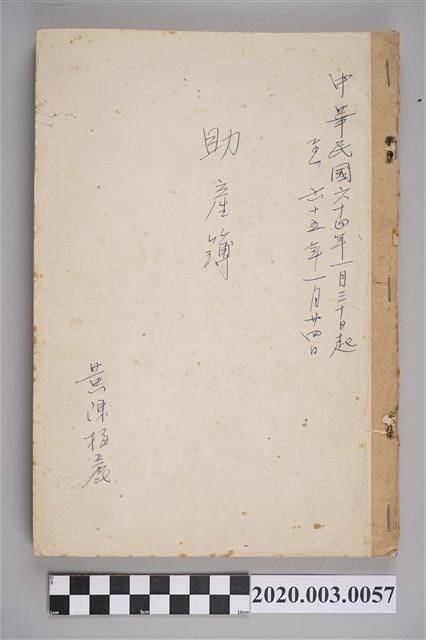 中華民國六十四年一月三十日起
至六十五年一月廿四日
助產簿
黃陳
1cm 5cm 10cm
2020.003.0057